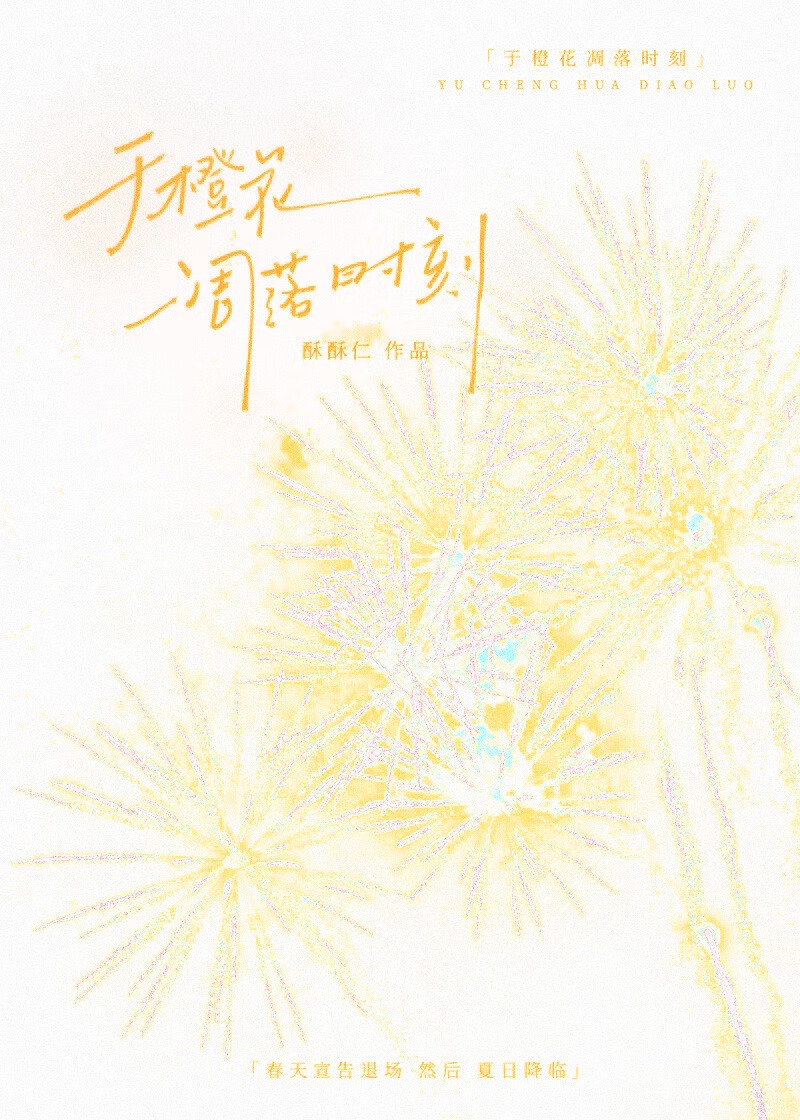 「于橙花凋落时刻」
YU CHENG HUA DIAO LUO
于橙花
凋落时刻
酥酥仁 作品
「春天宣告退场 然后 夏日降临」